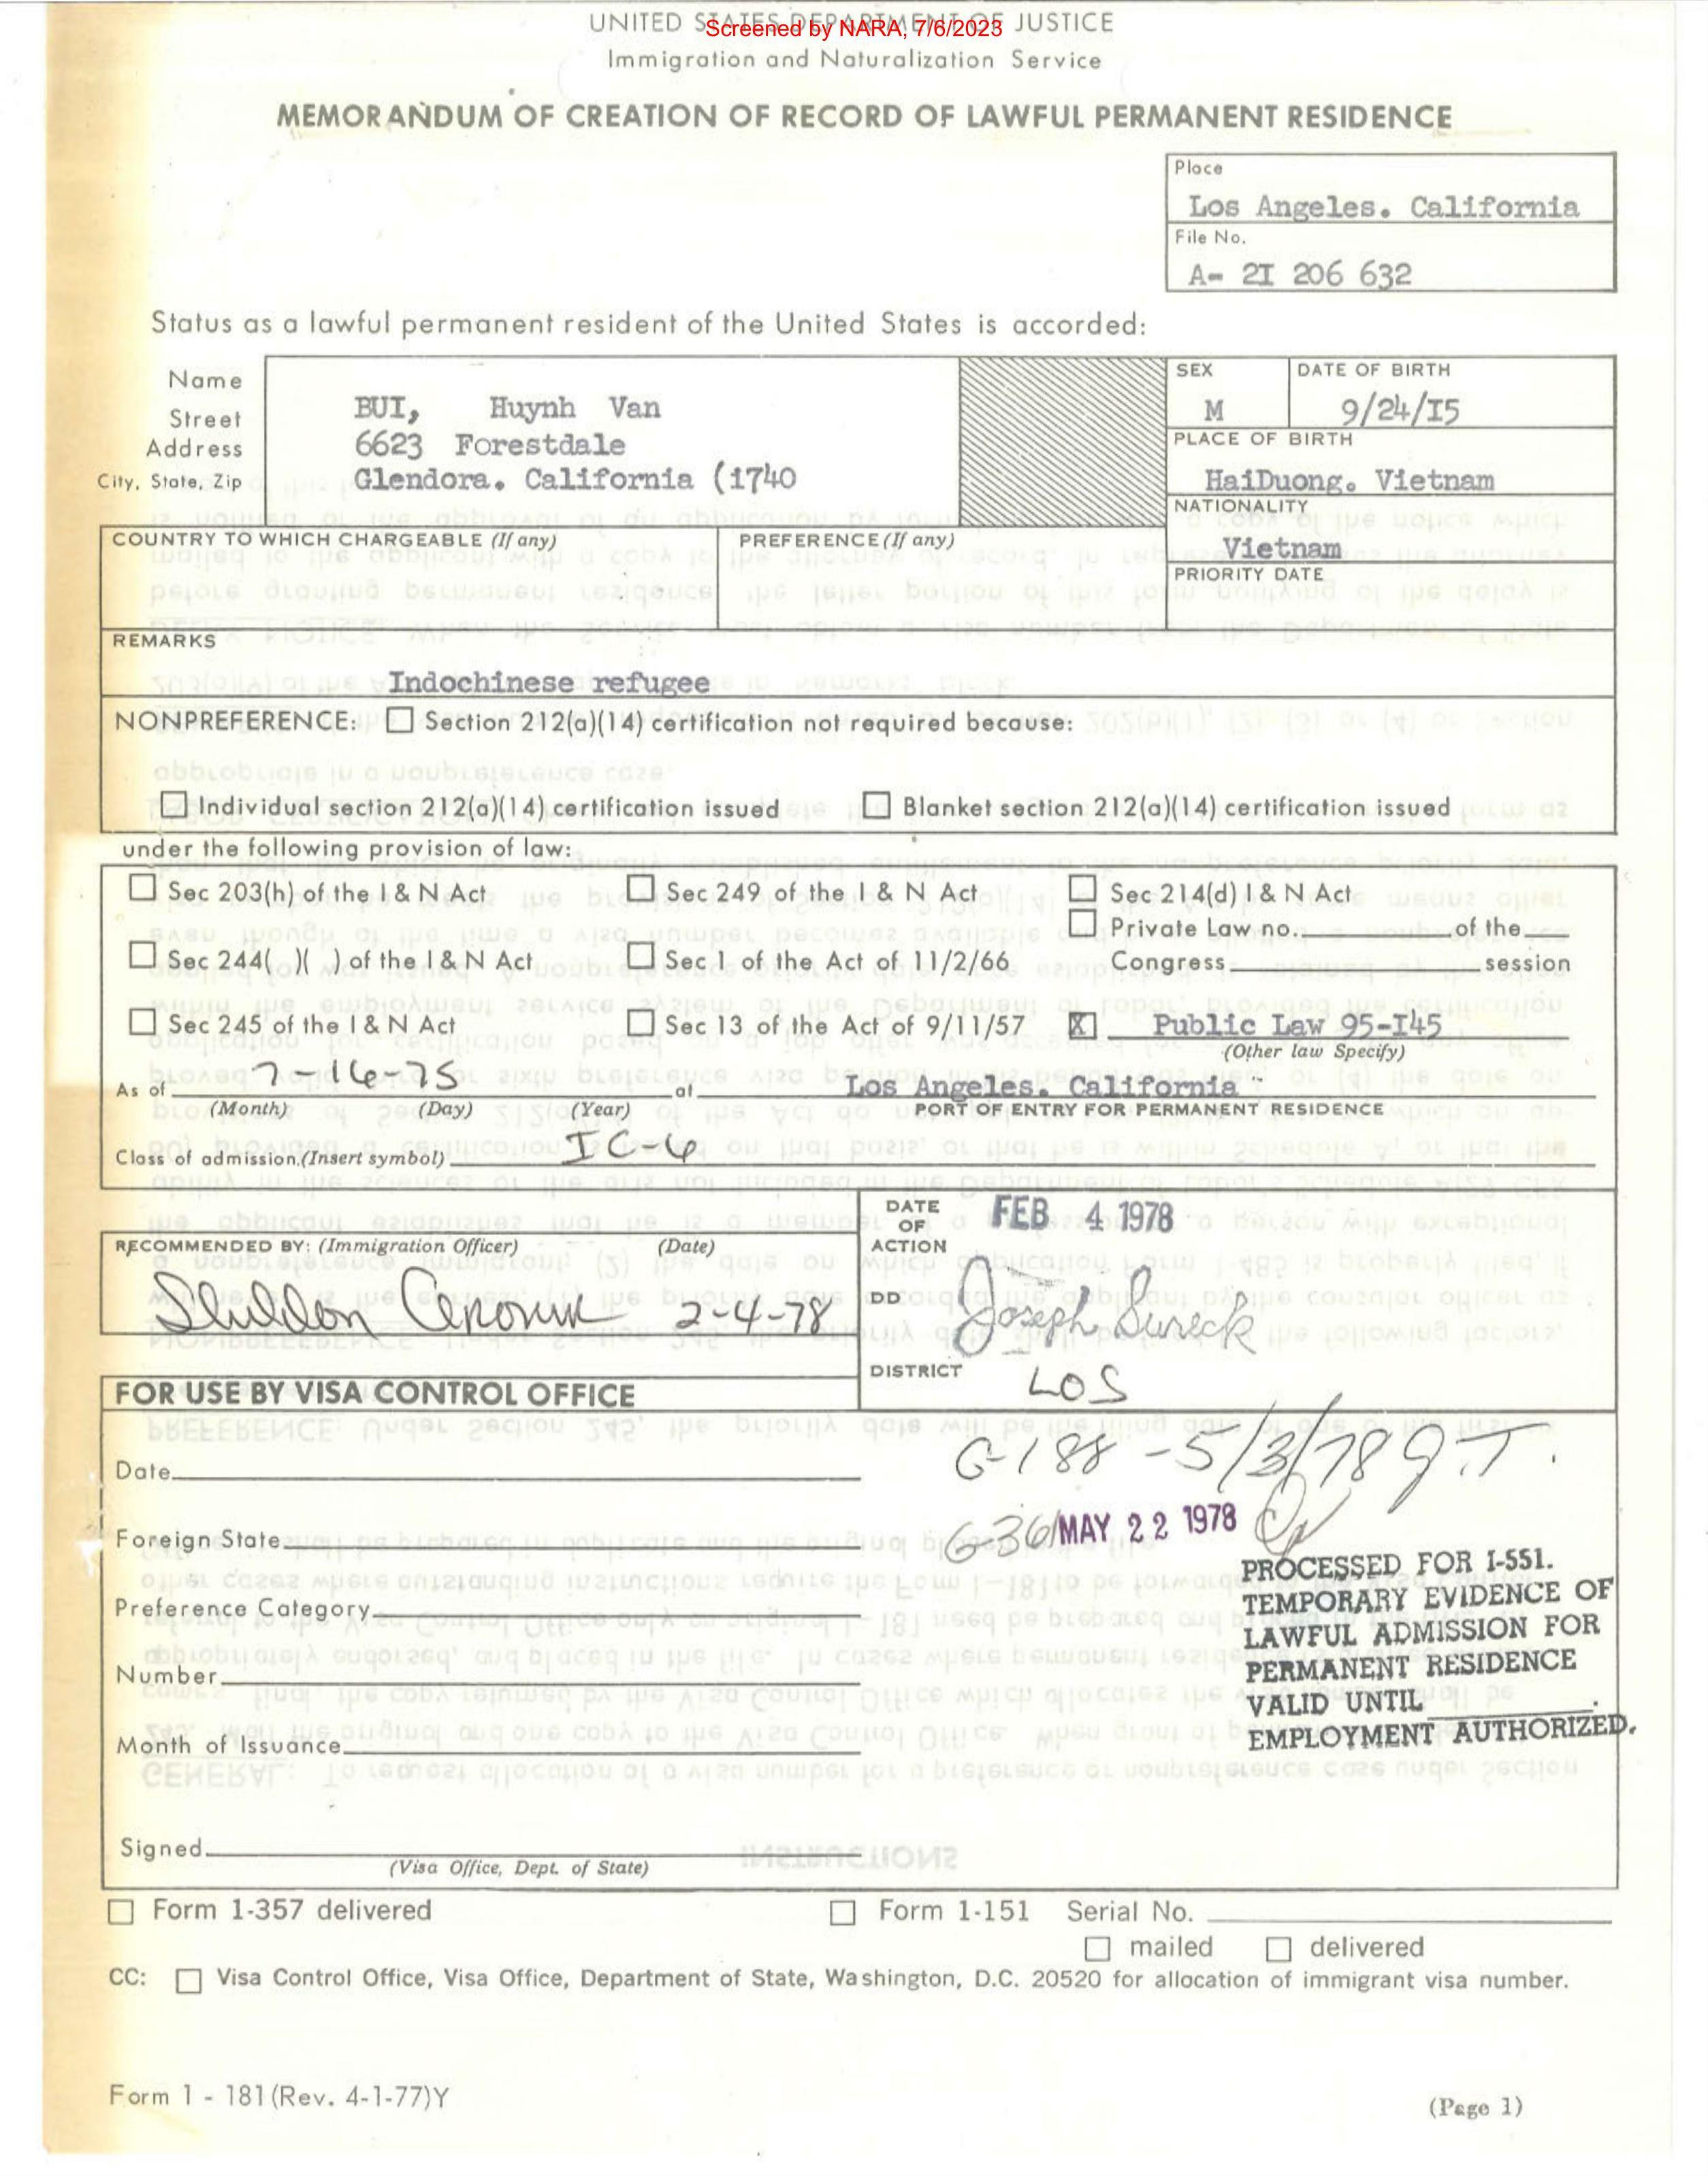 UNITED STATES DEPARTMENT OF JUSTICE
Screened by NARA, 7/6/2023
Immigration and Naturalization Service
MEMORANDUM OF CREATION OF RECORD OF LAWFUL PERMANENT RESIDENCE
Place
Los Angeles. California
File No.
A- 2I 206 632
Status as a lawful permanent resident of the United States is accorded:
Name
Street
Address
City, State, Zip
BUI, Huynh Van
6623 Forestdale
Glendora. California (1740
SEX
M
DATE OF BIRTH
9/24/I5
PLACE OF BIRTH
HaiDuong. Vietnam
NATIONALITY
Vietnam
PRIORITY DATE
COUNTRY TO WHICH CHARGEABLE (If any)
PREFERENCE (If any)
REMARKS
Indochinese refugee
NONPREFERENCE: Section 212(a)(14) certification not required because:
Individual section 212(a)(14) certification issued Blanket section 212(a)(14) certification issued
under the following provision of law:
Sec 203(h) of the I & N Act Sec 249 of the I & N Act Sec 214(d) I & N Act
Private Law no. of the
Sec 244( )( ) of the I & N Act Sec 1 of the Act of 11/2/66 Congress session
Sec 245 of the I & N Act Sec 13 of the Act of 9/11/57 X Public Law 95-I45
(Other law Specify)
As of 7-16-75 at Los Angeles. California
(Month) (Day) (Year) PORT OF ENTRY FOR PERMANENT RESIDENCE
Class of admission (Insert symbol) IC-6
RECOMMENDED BY: (Immigration Officer) (Date)
Sheldon 2-4-78
DATE OF ACTION
FEB 4 1978
DD
Joseph Sureck
DISTRICT
LOS
FOR USE BY VISA CONTROL OFFICE
G-188 -5/3/78 J.T.
G-361 MAY 22 1978
Date
Foreign State
Preference Category
Number
Month of Issuance
Signed
(Visa Office, Dept. of State)
PROCESSED FOR I-551.
TEMPORARY EVIDENCE OF
LAWFUL ADMISSION FOR
PERMANENT RESIDENCE
VALID UNTIL .
EMPLOYMENT AUTHORIZED.
Form 1-357 delivered Form 1-151 Serial No.
mailed delivered
CC: Visa Control Office, Visa Office, Department of State, Washington, D.C. 20520 for allocation of immigrant visa number.
Form 1 - 181 (Rev. 4-1-77)Y
(Page 1)